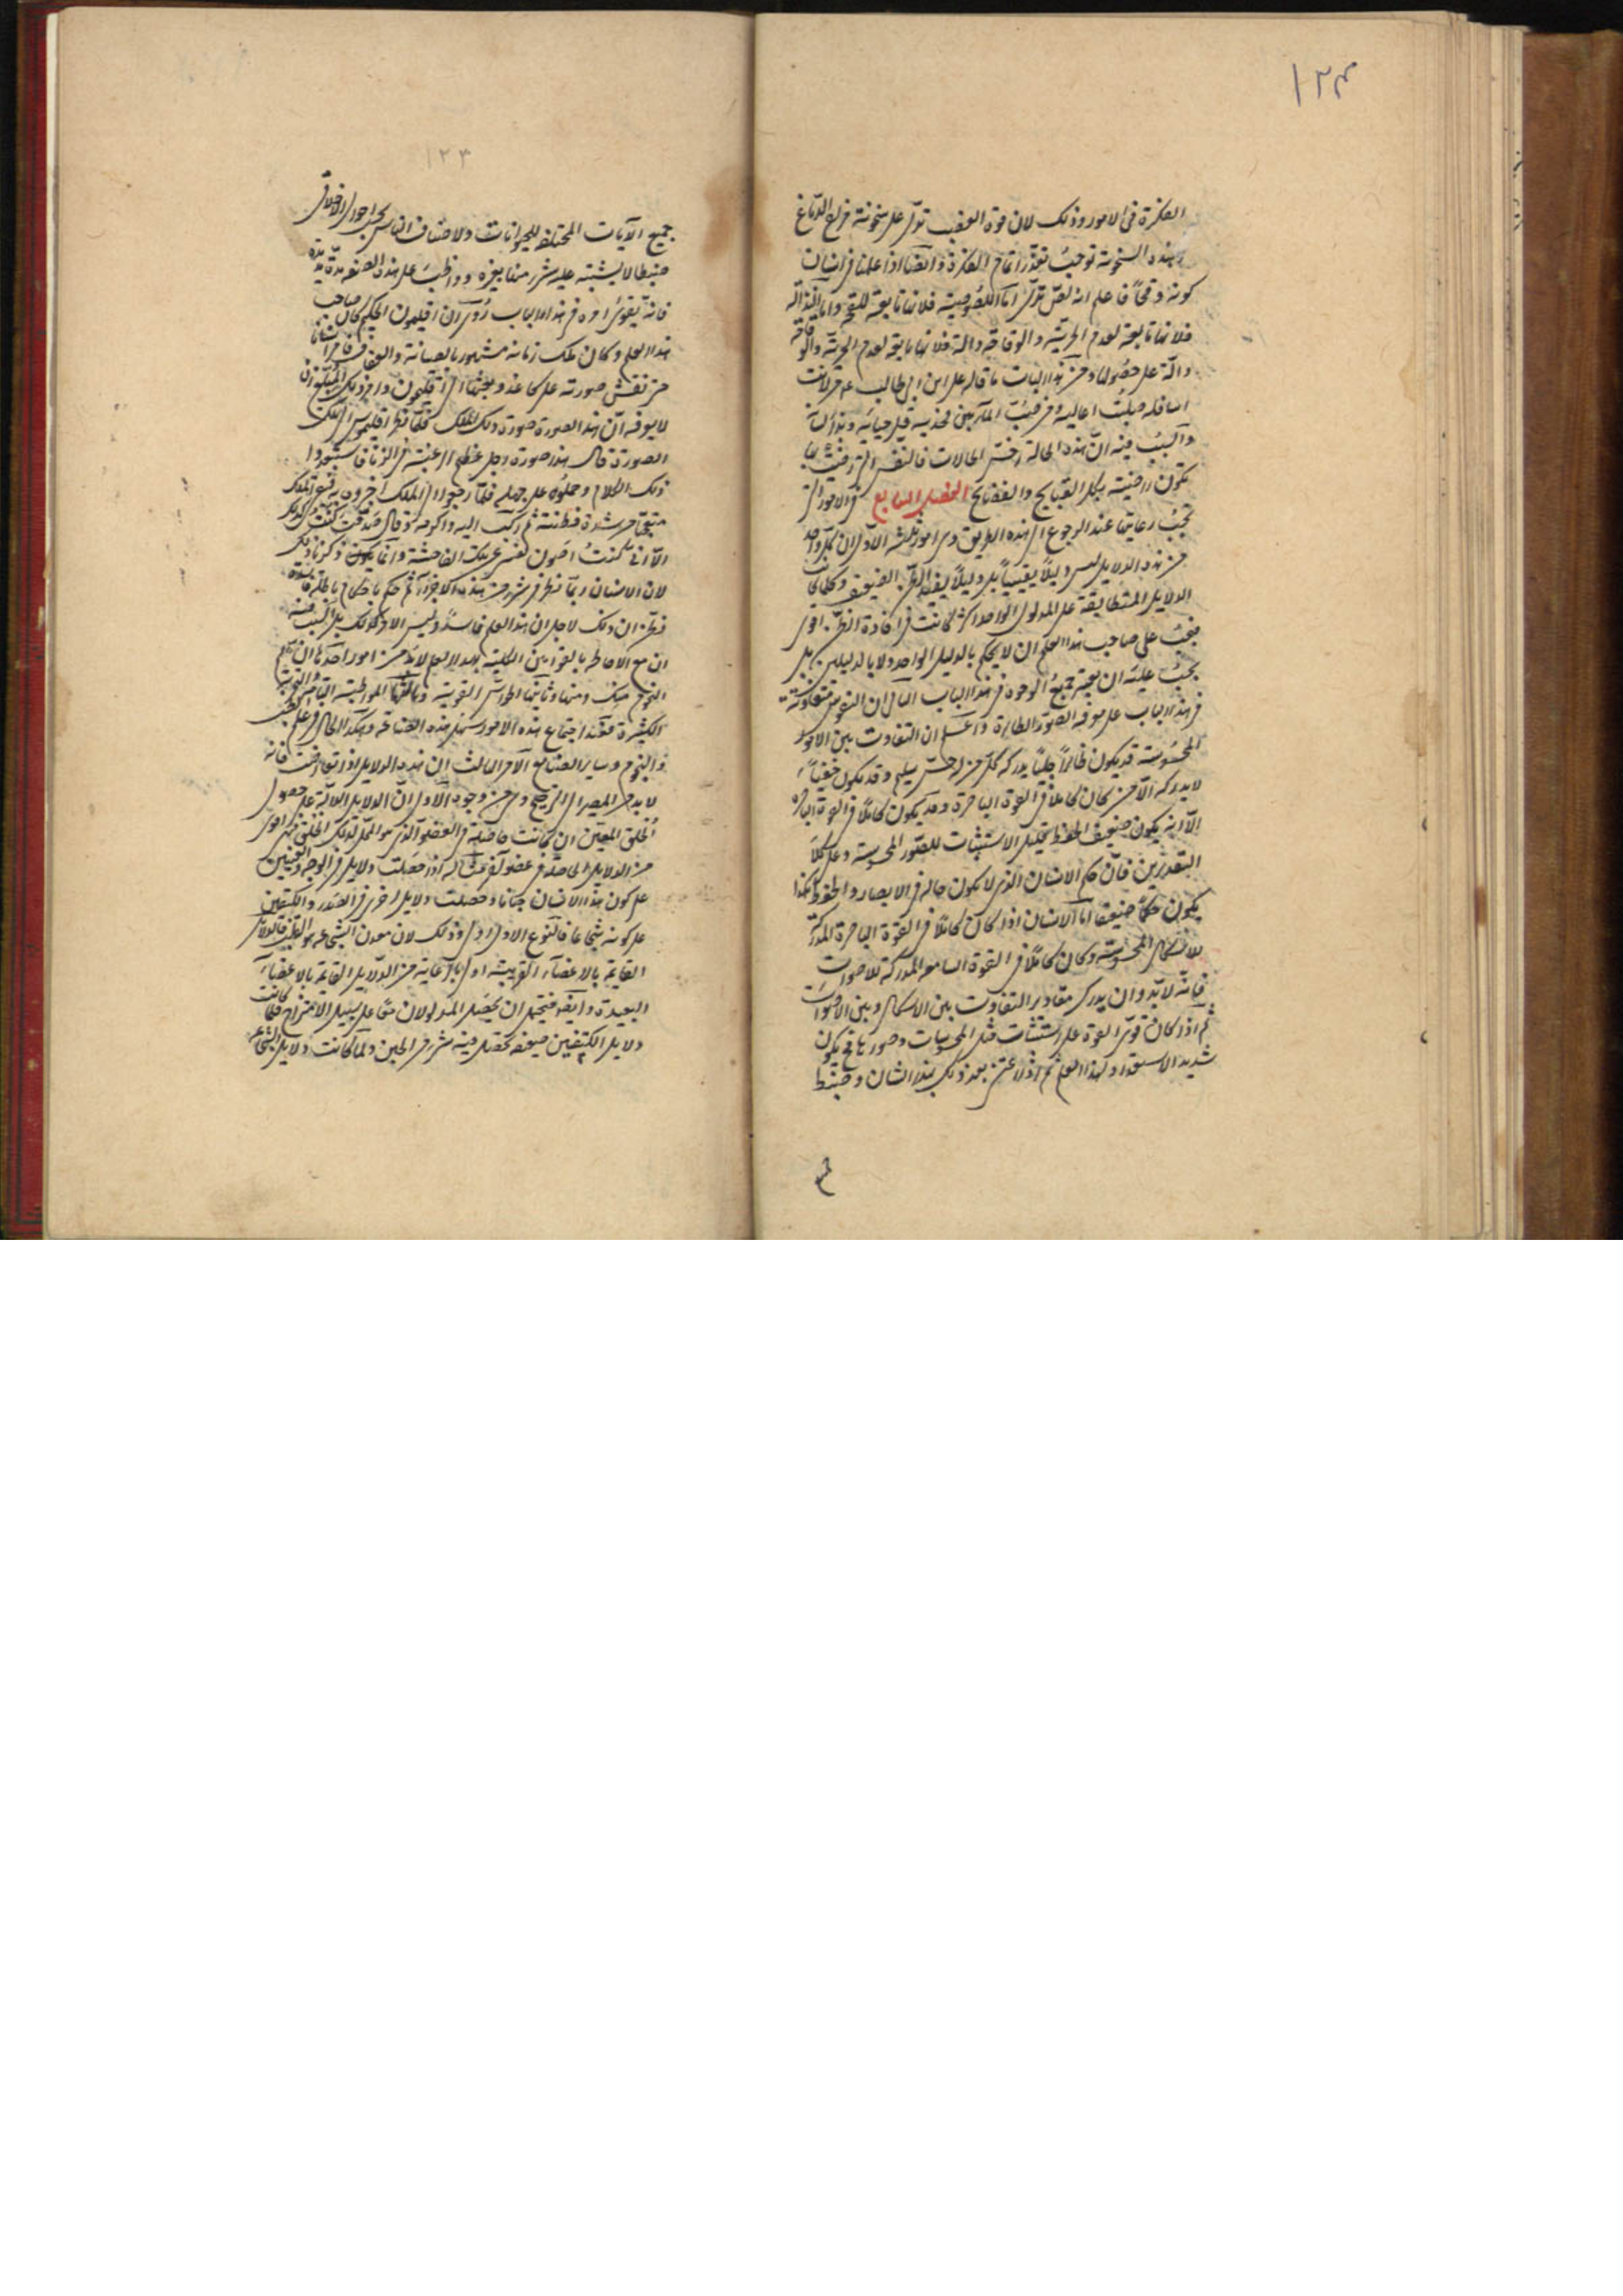 ١٢٣
الفكرة فى الامور وذلك لان قوة الغضب تدل على سخونة مزاج الدماغ
وهذه السخونة توجب تعذر اتمام الفكرة وايضا اذا علمنا فى انسان
كونه وقحا فاعلم انه لص نذل اما اللصوصية فلانها تابعة للقحة واما النذالة
فلانها تابعة لعدم الحرية والوقاحة دالة فلانها تابعة لعدم الحرية والوقاحة
دالة على حصولها ومن هذا الباب ما قاله على ابن ابى طالب
اسافله اعاليه وفى
والسبب فيه ان هذه الحالة اخس الحالات فالنفس التى رضيت بها
تكون راضية بكل القبايح والفضايح الفصل السابع فى الامور التى
يجب رعايتها عند الرجوع الى هذه الطريق وهى امور ثلثة الاول ان كل واحد
من هذه الدلايل ليس دليلا يقينيا بل دليلا يفيد الظن الضعيف وكلما كانت
الدلايل المتطابقة على المدلول الواحد اكثر كانت فى افادة الظن اقوى
فيجب على صاحب هذا العلم ان لا يحكم بالدليل الواحد ولا بالدليلين بل
يجب عليه ان يعتبر جميع الوجوه فى هذا الباب الثانى ان النفوس متفاوتة
فى هذا الباب على معرفة الصور الظاهرة واعلم ان التفاوت بين الامور
المحسوسة قد يكون ظاهرا جليا يدركه كل من له حس سليم وقد يكون خفيا
لا يدركه الا من كان كاملا فى القوة الباصرة وقد يكون كاملا فى القوة الباصرة
الا انه يكون ضعيف الحفظ قليل الاستثبات للصور المحسوسة وعلى كلا
التقديرين فان حكم الانسان الذى لا يكون حاله فى الابصار والحفظ هكذا
يكون حكما ضعيفا اما الانسان اذا كان كاملا فى القوة الباصرة المدركة
للاشكال المحسوسة وكان كاملا فى القوة السامعة المدركة للاصوات
فانه لا بد وان يدرك مقادير التفاوت بين الاشكال وبين الاصوات
ثم اذا كان قوى القوة على استثبات مثل المحسوسات وصورها فح يكون
شديد الاستعداد لهذا العلم ثم اذا اعتنى بعد ذلك بهذا الشان وضبط
جميع
١٢٣
جميع الآيات المختلفة للحيوانات ولاصناف الناس بحسب احوال الاخلاق
ضبطا لا يشتبه عليه شىء منها بغيره وواظب على هذه الصنعة مدة مديدة
فانه يقوى امره فى هذا الباب روى ان اقليمون الحكيم كان صاحب
هذا العلم وكان ملك زمانه مشهورا بالصيانة والعفاف
حتى نقش صورته على كاغذ وبعثها الى اقليمون
لا يعرفه ان هذه الصورة صورة ذلك الملك فلما نظر اقليمون الى تلك
الصورة قال هذه صورة رجل عظيم الرغبة فى الزنا فاستبعدوا
ذلك الكلام وحملوه على جهله فلما رجعوا الى الملك اخبروه به فبقى الملك
متعجبا من شدة فطنته ثم ركب اليه واكرمه وقال صدقت كنت كذلك
الا انى كنت اصون نفسى عن تلك الفاحشة وانما ذكرنا ذلك
لان الانسان ربما نظر فى شىء من هذه الاجزاء ثم حكم باحكام باطلة فاسدة
فظن ان ذلك لاجل ان هذا العلم فاسد وليس الامر كذلك بل السبب فيه
ان مع الاحاطة بالقوانين الكلية لهذا العلم لا بد من امور احدها ان
النجوم وثانيها الحواس القوية وثالثها التجربة
الكثيرة فعند اجتماع هذه الامور سهل هذه الصناعة وهكذا الحال فى علم الطب
والنجوم وساير الصنايع الامر الثالث ان هذه الدلايل اذا تعارضت فانه
لا بد من المصير الى الترجيح وهى من وجوه الاول ان الدلايل الدالة على حصول
الخلق المعين ان كانت حاصلة فى العضو الذى هو المحل لذلك الخلق فهى اقوى
من الدلايل الحاصلة فى عضو آخر مثاله اذا حصلت دلايل فى الوجه والعينين
على كون هذا الانسان جبانا وحصلت دلايل اخرى فى الصدر والكتفين
على كونه شجاعا فالنوع الاول اولى وذلك لان معدن الشجاعة هو القلب فالدلايل
القايمة بالاعضاء القريبة اولى بالرعاية من الدلايل القايمة بالاعضاء
البعيدة وايضا فيحتمل ان يحصل المدلولان معا على سبيل الامتزاج فلما كانت
دلايل الكتفين ضعيفة تحصل فيه شىء من الجبن ولما كانت دلايل الشجاعة